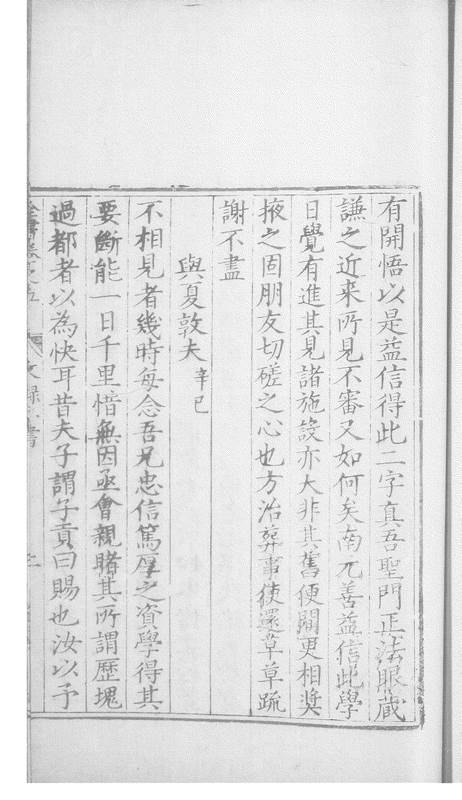 有開悟以是益信得此二字真吾聖門正法眼藏
謙之近来所見不審又如何矣南元善益信此學
日覺有進其見諸施設亦大非其舊便間更相奬
掖之固朋友切磋之心也方治葬事使還草草疏
謝不盡
與夏敦夫 辛巳
不相見者幾時每念吾兄忠信篤厚之資學得其
要斷能一日千里惜無因亟會親睹其所謂歷塊
過都者以為快耳昔夫子謂子貢曰賜也汝以予